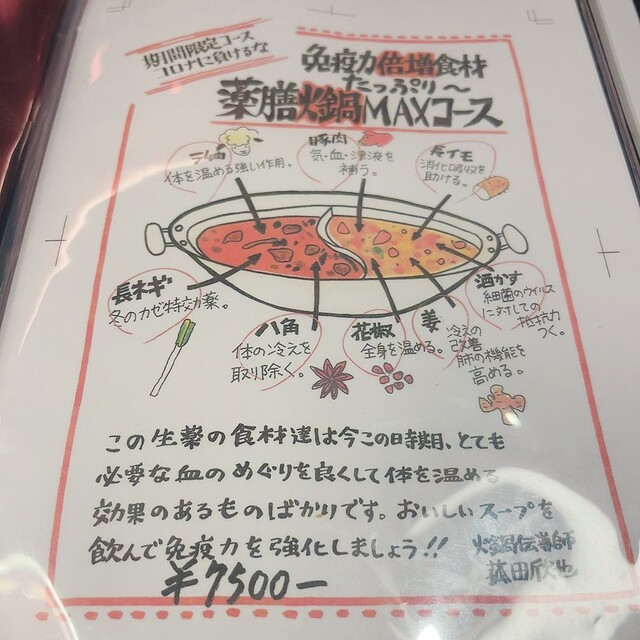 期間限定コース
コロナに負けるな
免疫力倍増食材
たっぷり〜
薬膳火鍋MAXコース
ラム肉
体を温める強い作用。
豚肉
気・血・津液を
補う。
長イモ
消化吸収を
助ける。
長ネギ
冬のカゼ特効薬。
八角
体の冷えを
取り除く。
花椒
全身を温める。
姜
冷えの
改善
肺の機能を
高める。
酒かす
細菌のウィルス
に対しての
抵抗力
つく。
この生薬の食材達は今この時期、とても
必要な血のめぐりを良くして体を温める
効果のあるものばかりです。おいしいスープを
飲んで免疫力を強化しましょう!!
火鍋伝導師
菰田欣也
¥7500−